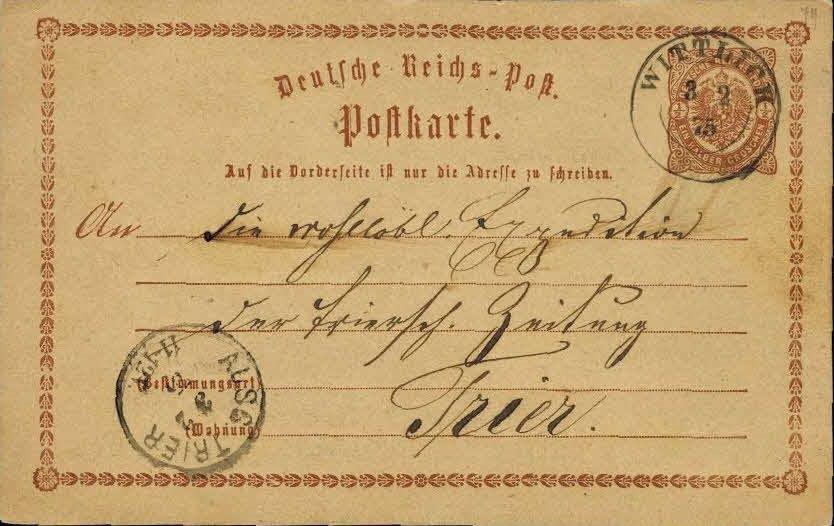 Deutsche Reichs-Post.
Postkarte.
Auf die Vorderseite ist nur die Adresse zu schreiben.
WITTLICH
3 2
75
EIN HALBER GROSCHEN
An die wohllöbl. Expedition
der Triersch. Zeitung
(Bestimmungsort)
Trier.
(Wohnung)
AUSG
TRIER